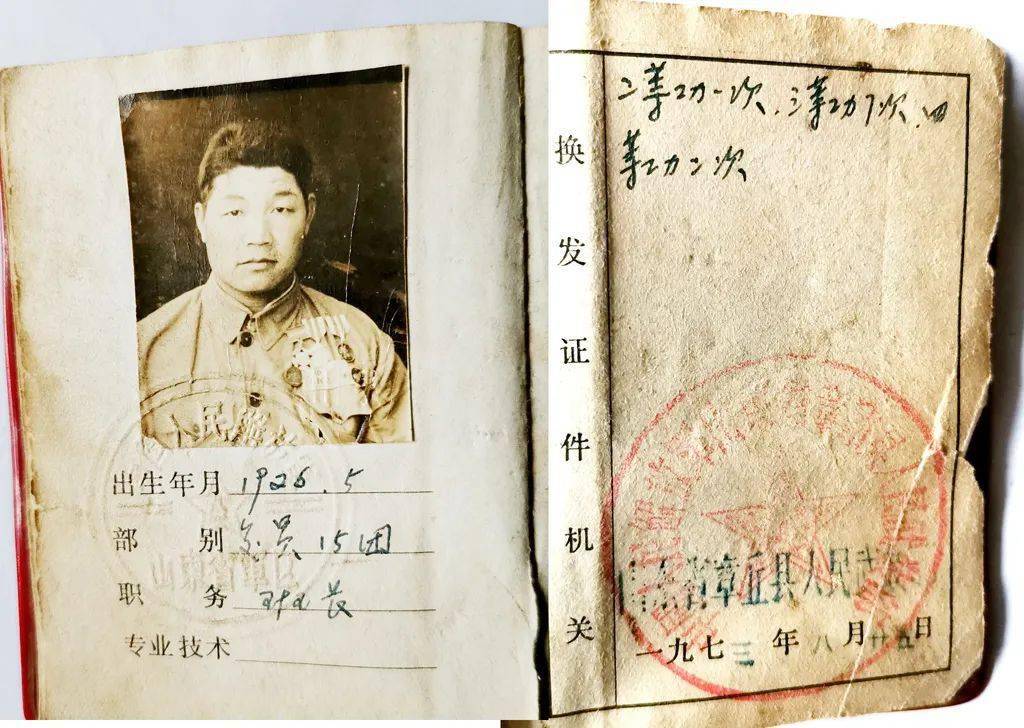 出生年月 1926.5
部别 15团
职务 班长
专业技术
山东省军区
换发证件机关
二等功一次、三等功7次、四
等功二次
章丘县人民武
一九七三年八月廿五日